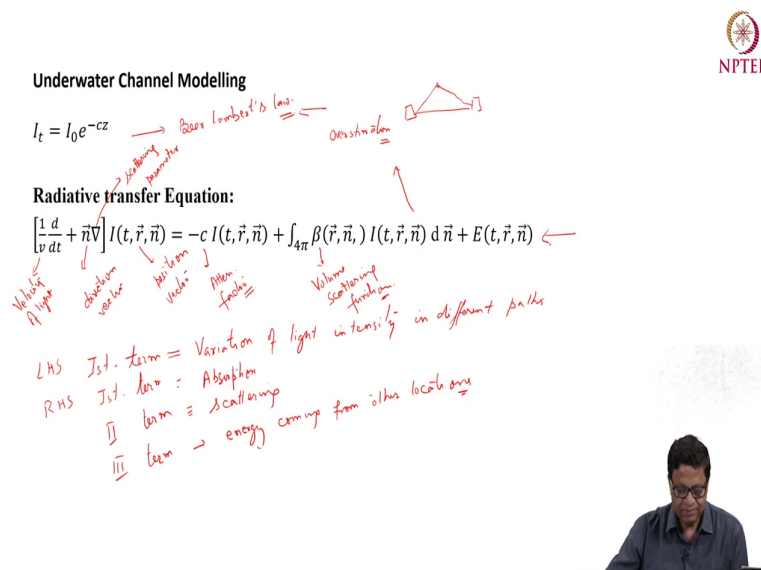 NPTEL
Underwater Channel Modelling
I_t = I_0e^{-cz} → Beer Lambert's law.
overstimation
scattering parameter
Radiative transfer Equation:
[1/v d/dt + n⃗∇] I(t, r⃗, n⃗) = −c I(t, r⃗, n⃗) + ∫_{4π} β(r⃗, n⃗, ) I(t, r⃗, n⃗) d n⃗ + E(t, r⃗, n⃗)
Velocity of light
direction vector
position vector
Atten. factor
Volume scattering function.
LHS Ist. term = Variation of light intensity in different paths
RHS Ist. term = Absorption
II term = scattering
III term → energy coming from other locations